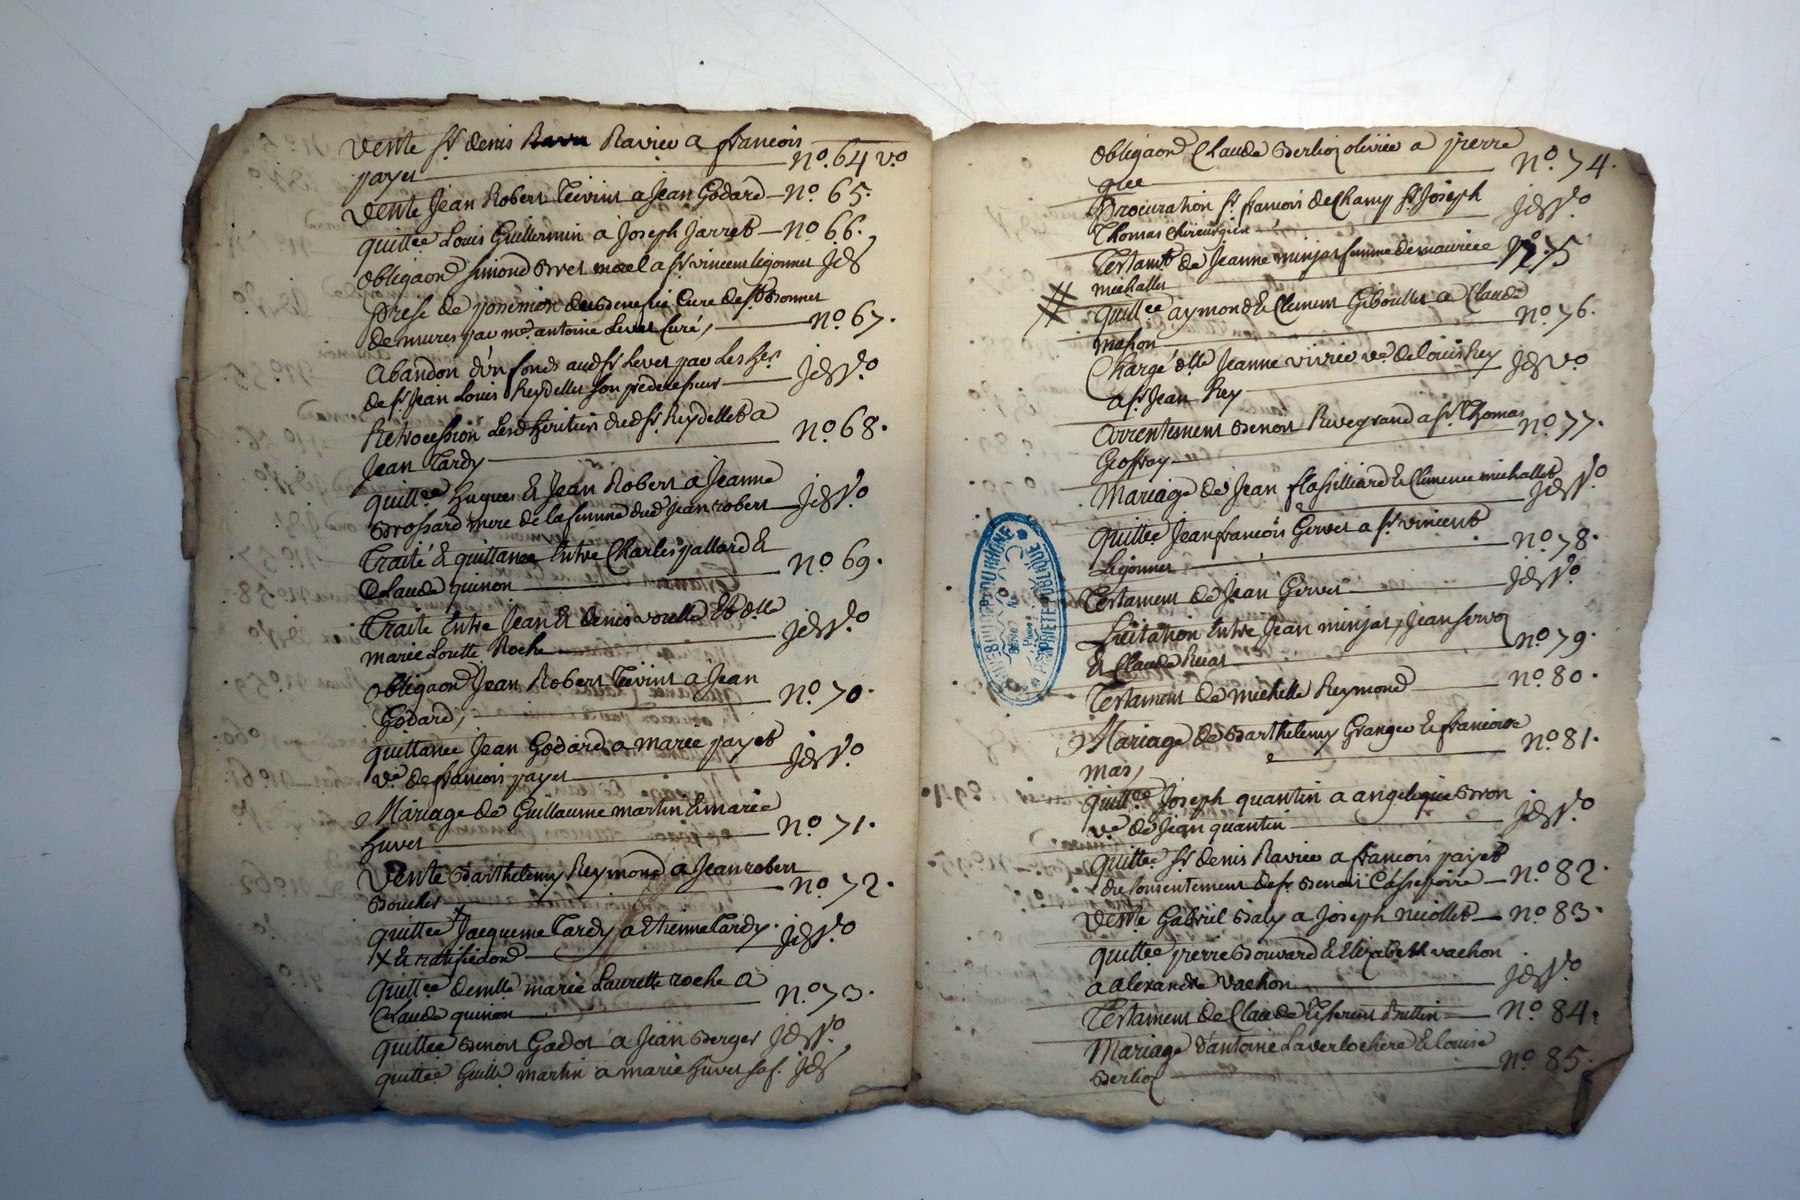 Vente sr. denis Ravier a francois
payet n.o 64 v.o
Vente Jean Robert a Jean Godard n.o 65.
quittce Louis Guillermin a Joseph Jarret n.o 66.
obligaon simond a sr. vincent ligonnet Jd
prise de possession du Benefice Cure de st. Bonnet
de mures par mre antoine Levet Curé, n.o 67.
Abandon d'un fonds aud. sr. Levet par Les hers
de sr. Jean Louis Reydellet son predecesseur Jd v.o
Retrocession Lesd. heritiers dud. sr. Reydellet a n.o 68.
Jean Tardy
quittce hugues & Jean Robert a Jeanne
Brossard mere de la femme dud. Jean robert Jd v.o
Traité & quittance Entre Charles pallard &
Claude quinon n.o 69.
Traité Entre Jean & denis Et dlle Jd v.o
marie Roche
obligaon Jean Robert a Jean
Godard, n.o 70.
quittance Jean Godard a marie payet
ve. de francois payet Jd v.o
Mariage de Guillaume martin & marie
huvet n.o 71.
Vente Barthelemy Reymond a Jean robert
Boucher n.o 72.
quittce Jacqueme Tardy a Etienne Tardy. Jd v.o
X & ratificaon
quittce demlle marie Laurette roche a
Claude quinon n.o 73.
quittce Benoit Gadot a Jean Berger Jd v.o
quittce Guille martin a marie huvet Jd
obligaon Claude Berlioz olivier a pierre n.o 74.
procuration sr. francois deChamp sr. Joseph Jd v.o
Thomas Chirurgien
Testamt de Jeanne minjat femme de maurice n.o 75
michallet
quittce aymond & Clement Giboullet a Claude
mahon n.o 76.
Charge dlle Jeanne vivier ve. de louis Rey Jd v.o
a sr. Jean Rey
Arrentement Benoit Rivegrand a sr. Thomas n.o 77.
Geoffray
Mariage de Jean & Clemence michallet Jd v.o
quittce Jean francois Gervet a sr. vincent n.o 78.
Ligonnet
Testament de Jean Gervet Jd v.o
Licitation Entre Jean minjat, Jean servoz n.o 79.
& Claude Ruat
Testament de michelle Reymond n.o 80.
Mariage de Barthelemy Granger & francoise n.o 81.
mas,
quittce Joseph quantin a angelique Bron
ve. de Jean quantin Jd v.o
quittce sr. denis Ravier a francois payet
du consentement de sr. Benoit n.o 82.
Vente Gabriel Baly a Joseph nicollet n.o 83.
quittce pierre Bouvard & Elizabeth vachon
a alexandre vachon Jd v.o
Testament de Claude n.o 84.
Mariage d'antoine Laverlochere & Louise n.o 85.
Berlioz
ARCHIVES DU DEPT DU RHÔNE
PROPRIÉTÉ PUBLIQUE